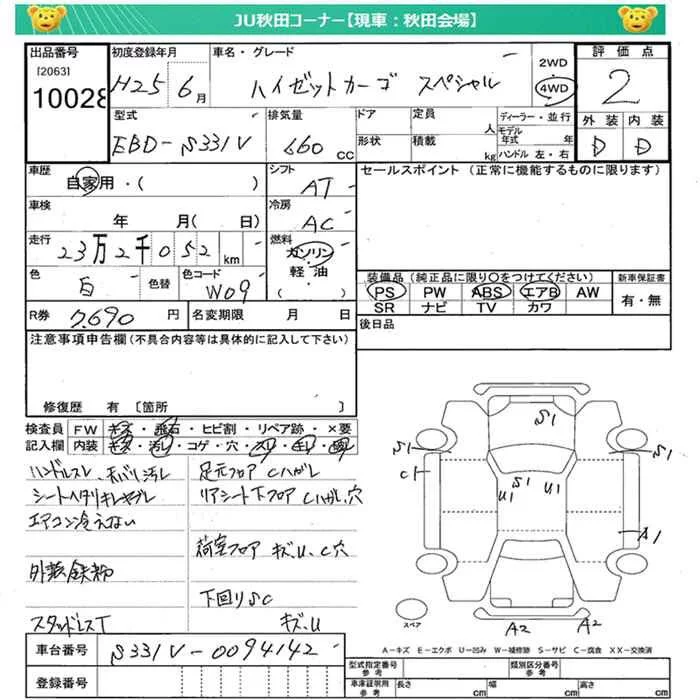 JU秋田コーナー【現車：秋田会場】
出品番号 初度登録年月 車名・グレード 2WD 評価点
[2063] 10028 H25 6月 ハイゼットカーゴ スペシャル 4WD 2
型式 排気量 ドア 定員 ディーラー・並行 外装 内装
EBD-S331V 660CC 人 モデル年式 年 D D
形状 積載 kg ハンドル 左・右
車歴 シフト セールスポイント（正常に機能するものに限ります）
自家用・( ) AT
車検 冷房
年 月( 日) AC
走行 燃料
23万2千052km ガソリン
軽油
( )
色 色替 色コード
白 W09
装備品（純正品に限り○をつけてください） 新車保証書
PS PW ABS エアB AW 有・無
SR ナビ TV カワ
R券 7,690円 名変期限 月 日 後日品
注意事項申告欄(不具合内容等は具体的に記入して下さい)
修復歴 有〔箇所 〕
検査員 FW キズ・飛石・ヒビ割・リペア跡・×要
記入欄 内装 キズ・汚れ・コゲ・穴・スレ・
ハンドルスレ、モケハリ汚レ 足元フロア Cハガレ
シートヘタリキレヤブレ リアシート下フロア Cハガレ,穴
エアコン冷えない
荷室フロア キズU、C穴
外装鉄粉
下回りSC
スタッドレスT キズ、U
S1
S1 S1
C1
S1
U1 U1
A1
スペア
A2 A2
A－キズ E－エクボ U－凹み W－補修跡 S－サビ C－腐食 XX－交換済
車台番号 S331V-0094142
登録番号
型式指定番号 参考 類別区分番号 参考
車庫証明用 参考 長さ cm 幅 cm 高さ cm